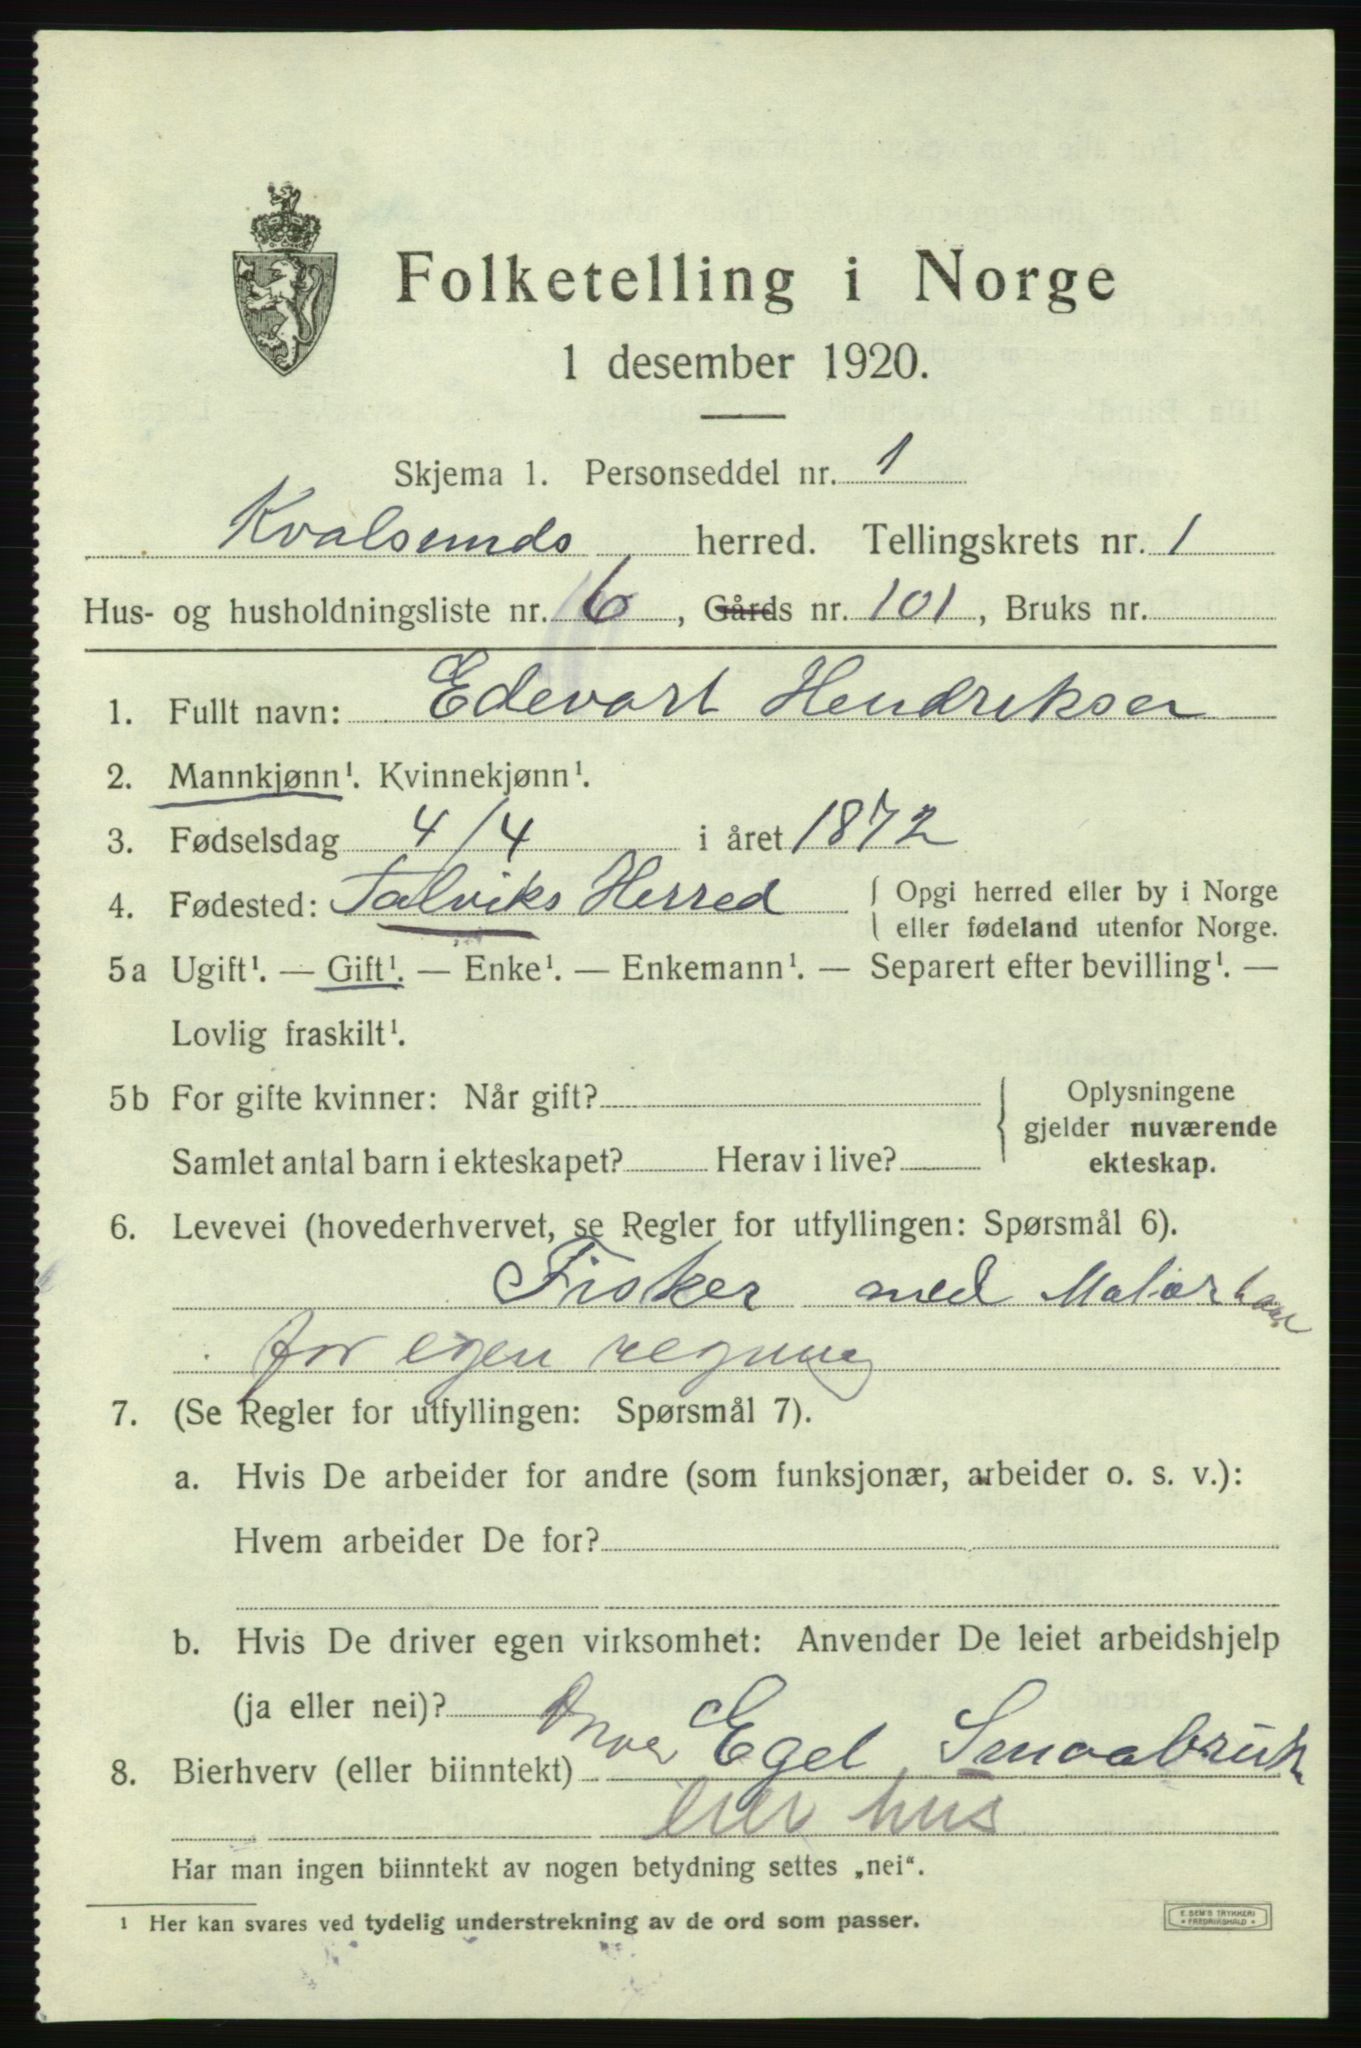 Folketelling i Norge
1 desember 1920.
Skjema 1. Personseddel nr. 1
Kvalsunds herred. Tellingskrets nr. 1
Hus- og husholdningsliste nr. 6, Gårds nr. 101, Bruks nr.
1. Fullt navn: Edevart Hendriksen
2. Mannkjønn¹. Kvinnekjønn¹.
3. Fødselsdag 4/4 i året 1872
4. Fødested: Talviks Herred { Opgi herred eller by i Norge
eller fødeland utenfor Norge.
5a Ugift¹. — Gift¹. — Enke¹. — Enkemann¹. — Separert efter bevilling¹. —
Lovlig fraskilt¹.
5b For gifte kvinner: Når gift?
Samlet antal barn i ekteskapet? Herav i live?
Oplysningene
gjelder nuværende
ekteskap.
6. Levevei (hovederhvervet, se Regler for utfyllingen: Spørsmål 6).
Fisker med
for egen regning
7. (Se Regler for utfyllingen: Spørsmål 7).
a. Hvis De arbeider for andre (som funksjonær, arbeider o. s. v.):
Hvem arbeider De for?
b. Hvis De driver egen virksomhet: Anvender De leiet arbeidshjelp
(ja eller nei)?
8. Bierhverv (eller biinntekt) Driver Eget Smaabruk
eier hus
Har man ingen biinntekt av nogen betydning settes „nei“.
¹ Her kan svares ved tydelig understrekning av de ord som passer.
E. SEM'S TRYKKERI
FREDRIKSHALD